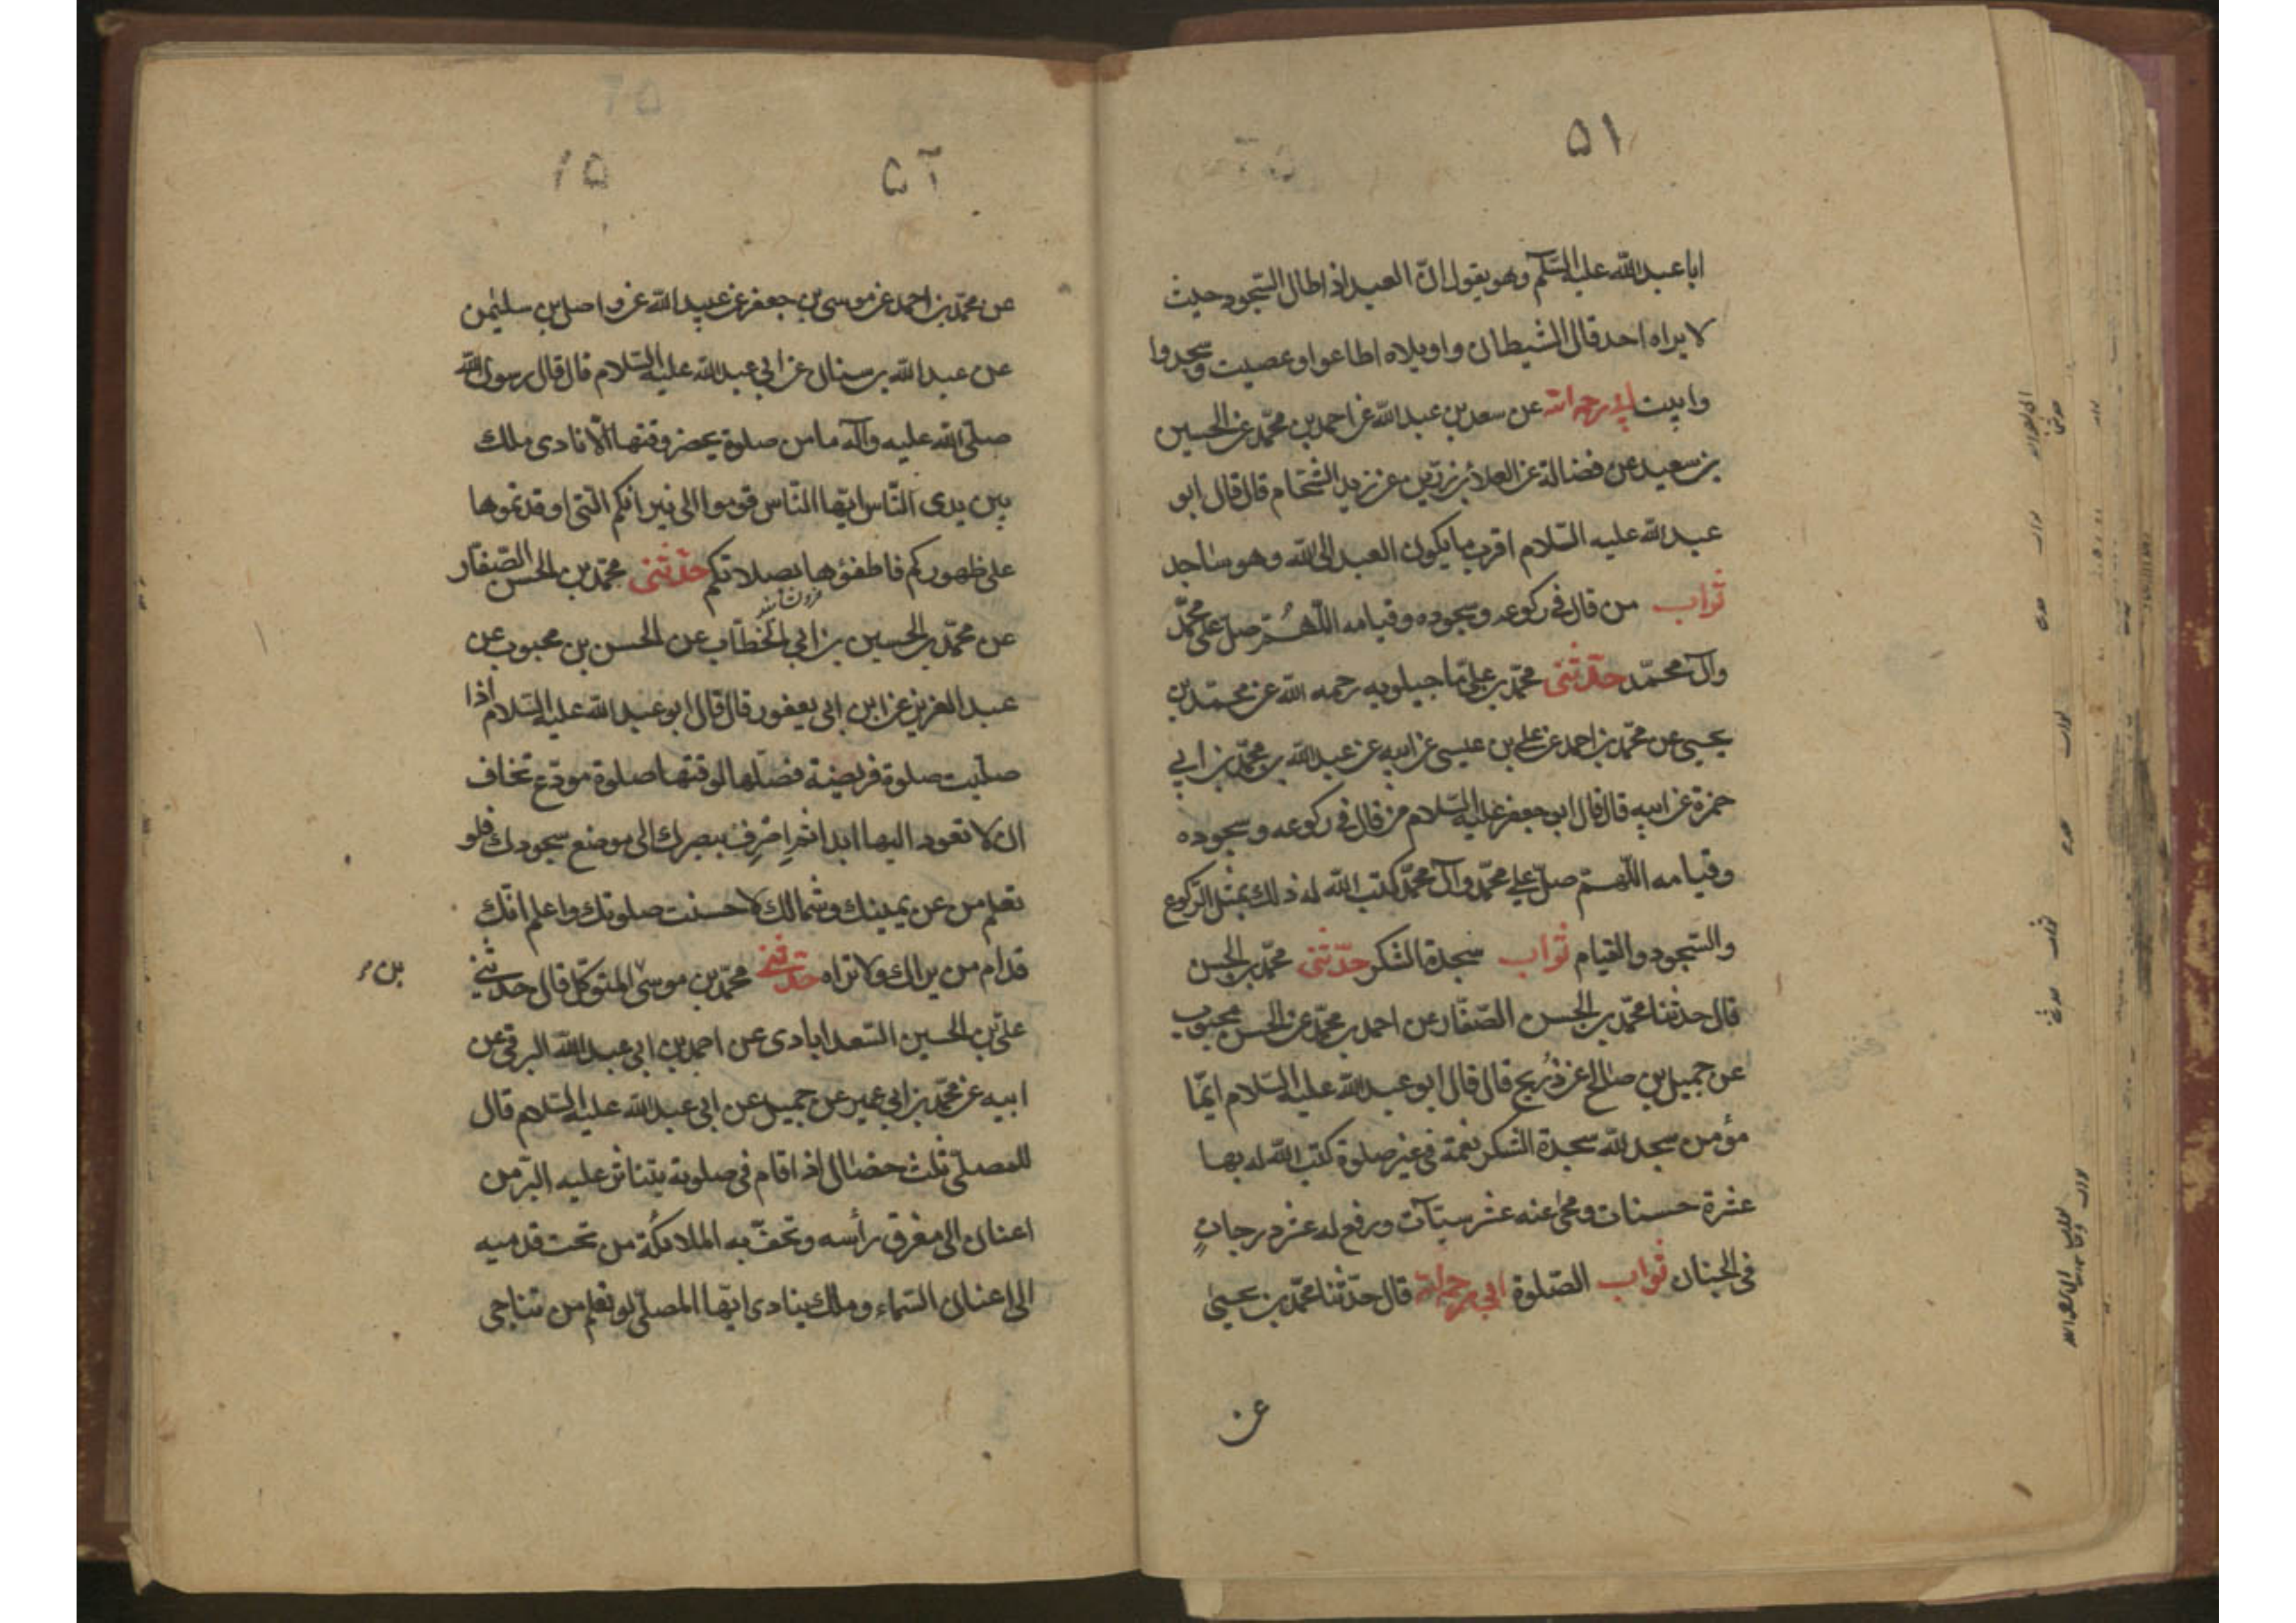 ۵۱
ابا عبد الله عليه السلم وهو يقول ان العبد اذا طال السجود حيث
لا يراه احد قال الشيطان واويلاه اطاعوا وعصيت وسجدوا
وابيت ابى رحمه الله عن سعد بن عبد الله عن احمد بن محمد عن الحسين
بن سعيد عن فضالة عن العلاء بن رزين عن زيد الشحام قال قال ابو
عبد الله عليه السلام اقرب ما يكون العبد الى الله وهو ساجد
ثواب من قال فى ركوعه وسجوده وقيامه اللهم صل على محمد
وآل محمد حدثنى محمد بن على ماجيلويه رحمه الله عن محمد بن
يحيى عن محمد بن احمد عن على بن عيسى عن ابيه عن عبد الله بن محمد بن ابي
حمزة عن ابيه قال قال ابو جعفر عليه السلام من قال فى ركوعه وسجوده
وقيامه اللهم صل على محمد وآل محمد كتب الله له ذلك بمثل الركوع
والسجود والقيام ثواب سجدة الشكر حدثنى محمد بن الحسن
قال حدثنا محمد بن الحسن الصفار عن احمد بن محمد عن الحسن محبوب
عن جميل بن صالح عن ذريح قال قال ابو عبد الله عليه السلام ايما
مؤمن سجد لله سجدة الشكر نعمة فى غير صلوة كتب الله له بها
عشرة حسنات ومحى عنه عشر سيئآت ورفع له عشر درجات
فى الجنان ثواب الصلوة ابى رحمه الله قال حدثنا محمد بن يحيى
عن
۵۲
۱۵
عن محمد بن احمد عن موسى بن جعفر عن عبيد الله عن واصل بن سليمن
عن عبد الله بن سنان عن ابي عبد الله عليه السلام قال قال رسول الله
صلى الله عليه وآله ما من صلوة يحضر وقتها الا نادى ملك
بين يدى الناس ايها الناس قوموا الى نيرانكم التى اوقدتموها
على ظهوركم فاطفؤها بصلاتكم حدثنى محمد بن الحسن الصفار
عن محمد بن الحسين بن ابي الخطاب عن الحسن بن محبوب عن
عبد العزيز عن ابن ابى يعفور قال قال ابو عبد الله عليه السلام اذا
صليت صلوة فريضة فصلها لوقتها صلوة مودع تخاف
ان لا تعود اليها ابدا ثم اضرف ببصرك الى موضع سجودك فلو
تعلم من عن يمينك وشمالك لاحسنت صلوتك واعلم انك
قدام من يراك ولا تراه حدثنى محمد بن موسى المتوكل قال حدثنى
بن
على بن الحسين السعدابادى عن احمد بن ابى عبد الله البرقى عن
ابيه عن محمد بن ابي عمير عن جميل عن ابى عبد الله عليه السلام قال
للمصلى ثلث خصال اذا قام فى صلوته يتناثر عليه البر من
اعنان الى مفرق رأسه وتحف به الملائكة من تحت قدميه
الى اعنان السماء وملك ينادى ايها المصلى لو تعلم من تناجى